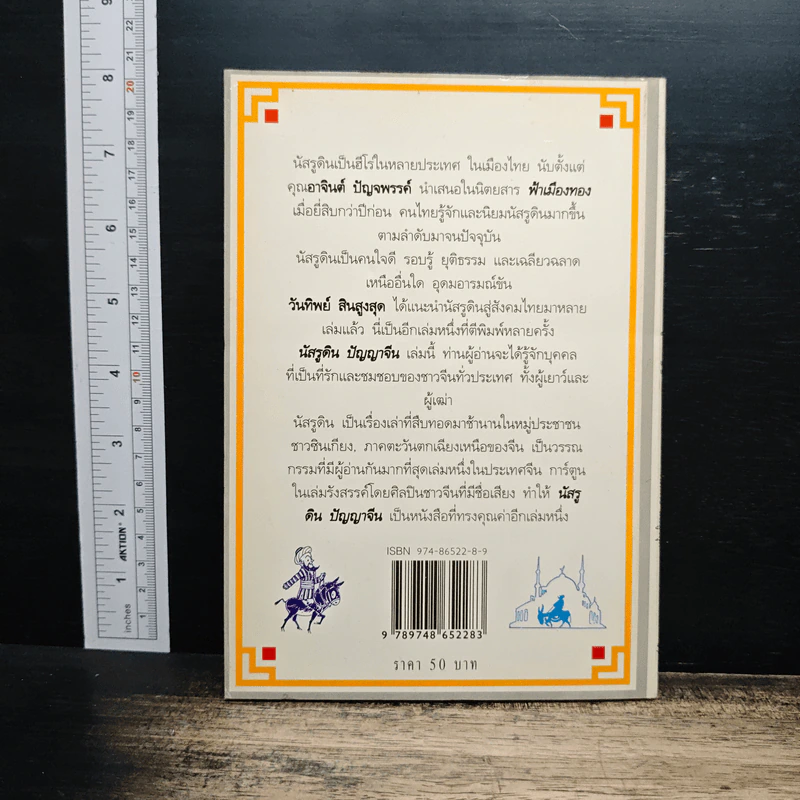 นัสรูดินเป็นฮีโร่ในหลายประเทศ ในเมืองไทย นับตั้งแต่
คุณอาจินต์ ปัญจพรรค์ นำเสนอในนิตยสาร ฟ้าเมืองทอง
เมื่อยี่สิบกว่าปีก่อน คนไทยรู้จักและนิยมนัสรูดินมากขึ้น
ตามลำดับมาจนปัจจุบัน
นัสรูดินเป็นคนใจดี รอบรู้ ยุติธรรม และเฉลียวฉลาด
เหนืออื่นใด อุดมอารมณ์ขัน
วันทิพย์ สินสูงสุด ได้แนะนำนัสรูดินสู่สังคมไทยมาหลาย
เล่มแล้ว นี่เป็นอีกเล่มหนึ่งที่ตีพิมพ์หลายครั้ง
นัสรูดิน ปัญญาจีน เล่มนี้ ท่านผู้อ่านจะได้รู้จักบุคคล
ที่เป็นที่รักและชมชอบของชาวจีนทั่วประเทศ ทั้งผู้เยาว์และ
ผู้เฒ่า
นัสรูดิน เป็นเรื่องเล่าที่สืบทอดมาช้านานในหมู่ประชาชน
ชาวซินเกียง, ภาคตะวันตกเฉียงเหนือของจีน เป็นวรรณ
กรรมที่มีผู้อ่านกันมากที่สุดเล่มหนึ่งในประเทศจีน การ์ตูน
ในเล่มรังสรรค์โดยศิลปินชาวจีนที่มีชื่อเสียง ทำให้ นัสรู
ดิน ปัญญาจีน เป็นหนังสือที่ทรงคุณค่าอีกเล่มหนึ่ง
ISBN 974-86522-8-9
9 789748 652283
ราคา 50 บาท
9
8
7
6
5
4
3
2
1
inches
AKTION®
22
21
20
19
18
17
16
15
14
13
12
11
10
9
8
7
6
5
4
3
2
1